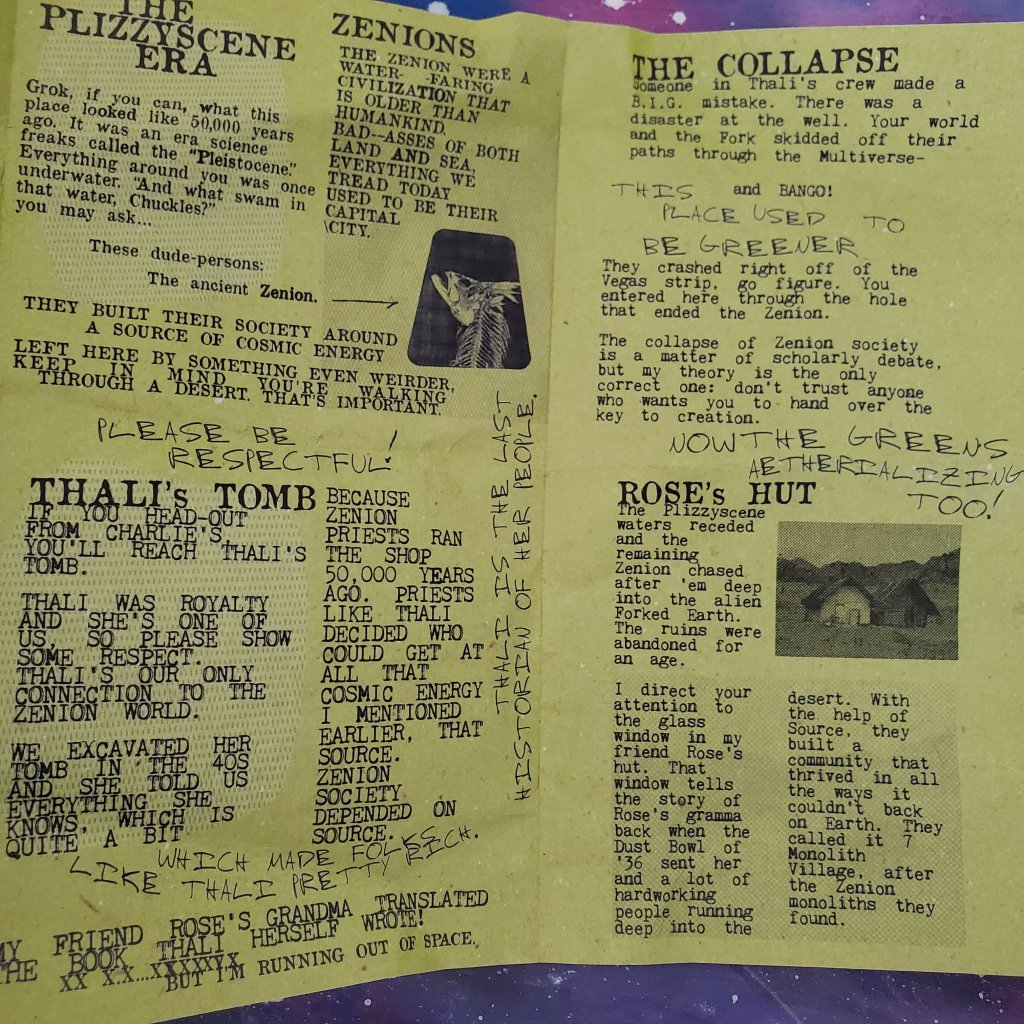 THE
PLIZZYSCENE
ERA
Grok, if you can, what this
place looked like 50,000 years
ago. It was an era science
freaks called the "Pleistocene."
Everything around you was once
underwater. "And what swam in
that water, Chuckles?"
you may ask...
These dude-persons:
The ancient Zenion.
ZENIONS
THE ZENION WERE A
WATER- -FARING
CIVILIZATION THAT
IS OLDER THAN
HUMANKIND.
BAD--ASSES OF BOTH
LAND AND SEA,
EVERYTHING WE
TREAD TODAY
USED TO BE THEIR
CAPITAL
\CITY.
THEY BUILT THEIR SOCIETY AROUND
A SOURCE OF COSMIC ENERGY
LEFT HERE BY SOMETHING EVEN WEIRDER,
KEEP IN MIND YOU'RE WALKING
THROUGH A DESERT. THAT'S IMPORTANT.
PLEASE BE
RESPECTFUL!
THALI's TOMB
IF YOU HEAD-OUT
FROM CHARLIE'S,
YOU'LL REACH THALI'S
TOMB.
THALI WAS ROYALTY
AND SHE'S ONE OF
US, SO PLEASE SHOW
SOME RESPECT.
THALI'S OUR ONLY
CONNECTION TO THE
ZENION WORLD.
WE EXCAVATED HER
TOMB IN THE 40S
AND SHE TOLD US
EVERYTHING SHE
KNOWS, WHICH IS
QUITE A BIT
BECAUSE
ZENION
PRIESTS RAN
THE SHOP
50,000 YEARS
AGO. PRIESTS
LIKE THALI
DECIDED WHO
COULD GET AT
ALL THAT
COSMIC ENERGY
I MENTIONED
EARLIER, THAT
SOURCE.
ZENION
SOCIETY
DEPENDED ON
SOURCE.
THALI IS THE LAST
HISTORIAN OF HER PEOPLE.
WHICH MADE FOLKS
LIKE THALI PRETTY RICH.
MY FRIEND ROSE'S GRANDMA TRANSLATED
THE BOOK THALI HERSELF WROTE!
XX X.X...XXXXXYX
BUT I'M RUNNING OUT OF SPACE.
THE COLLAPSE
Someone in Thali's crew made a
B.I.G. mistake. There was a
disaster at the well. Your world
and the Fork skidded off their
paths through the Multiverse-
and BANGO!
THIS
PLACE USED TO
BE GREENER
They crashed right off of the
Vegas strip, go figure. You
entered here through the hole
that ended the Zenion.
The collapse of Zenion society
is a matter of scholarly debate,
but my theory is the only
correct one: don't trust anyone
who wants you to hand over the
key to creation.
NOW THE GREEN'S
AETHERIALIZING
TOO!
ROSE's HUT
The Plizzyscene
waters receded
and the
remaining
Zenion chased
after 'em deep
into the alien
Forked Earth.
The ruins were
abandoned for
an age.
I direct your
attention to
the glass
window in my
friend Rose's
hut. That
window tells
the story of
Rose's gramma
back when the
Dust Bowl of
'36 sent her
and a lot of
hardworking
people running
deep into the
desert. With
the help of
Source, they
built a
community that
thrived in all
the ways it
couldn't back
on Earth. They
called it 7
Monolith
Village, after
the Zenion
monoliths they
found.